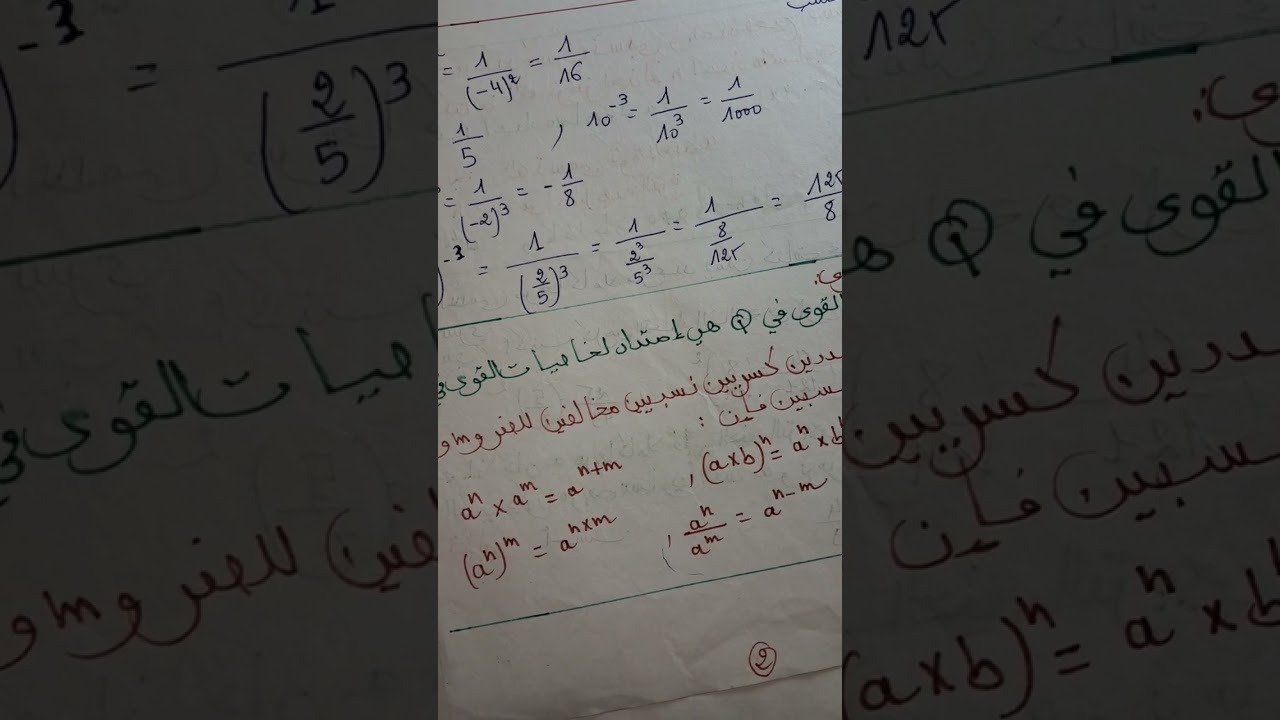 = 1/(-4)² = 1/16
1/5 , 10⁻³ = 1/10³ = 1/1000
= 1/(-2)³ = -1/8
)⁻³ = 1/(2/5)³ = 1/(2³/5³) = 1/(8/125) = 125/8
القوى في Q هي إمتداد لخاصيات القوى في
كسريين نسبيين مخالفين للصفر و m و
فإن :
aⁿ × aᵐ = aⁿ⁺ᵐ , (a×b)ⁿ = aⁿ × b
(aⁿ)ᵐ = aⁿˣᵐ , aⁿ/aᵐ = aⁿ⁻ᵐ
2